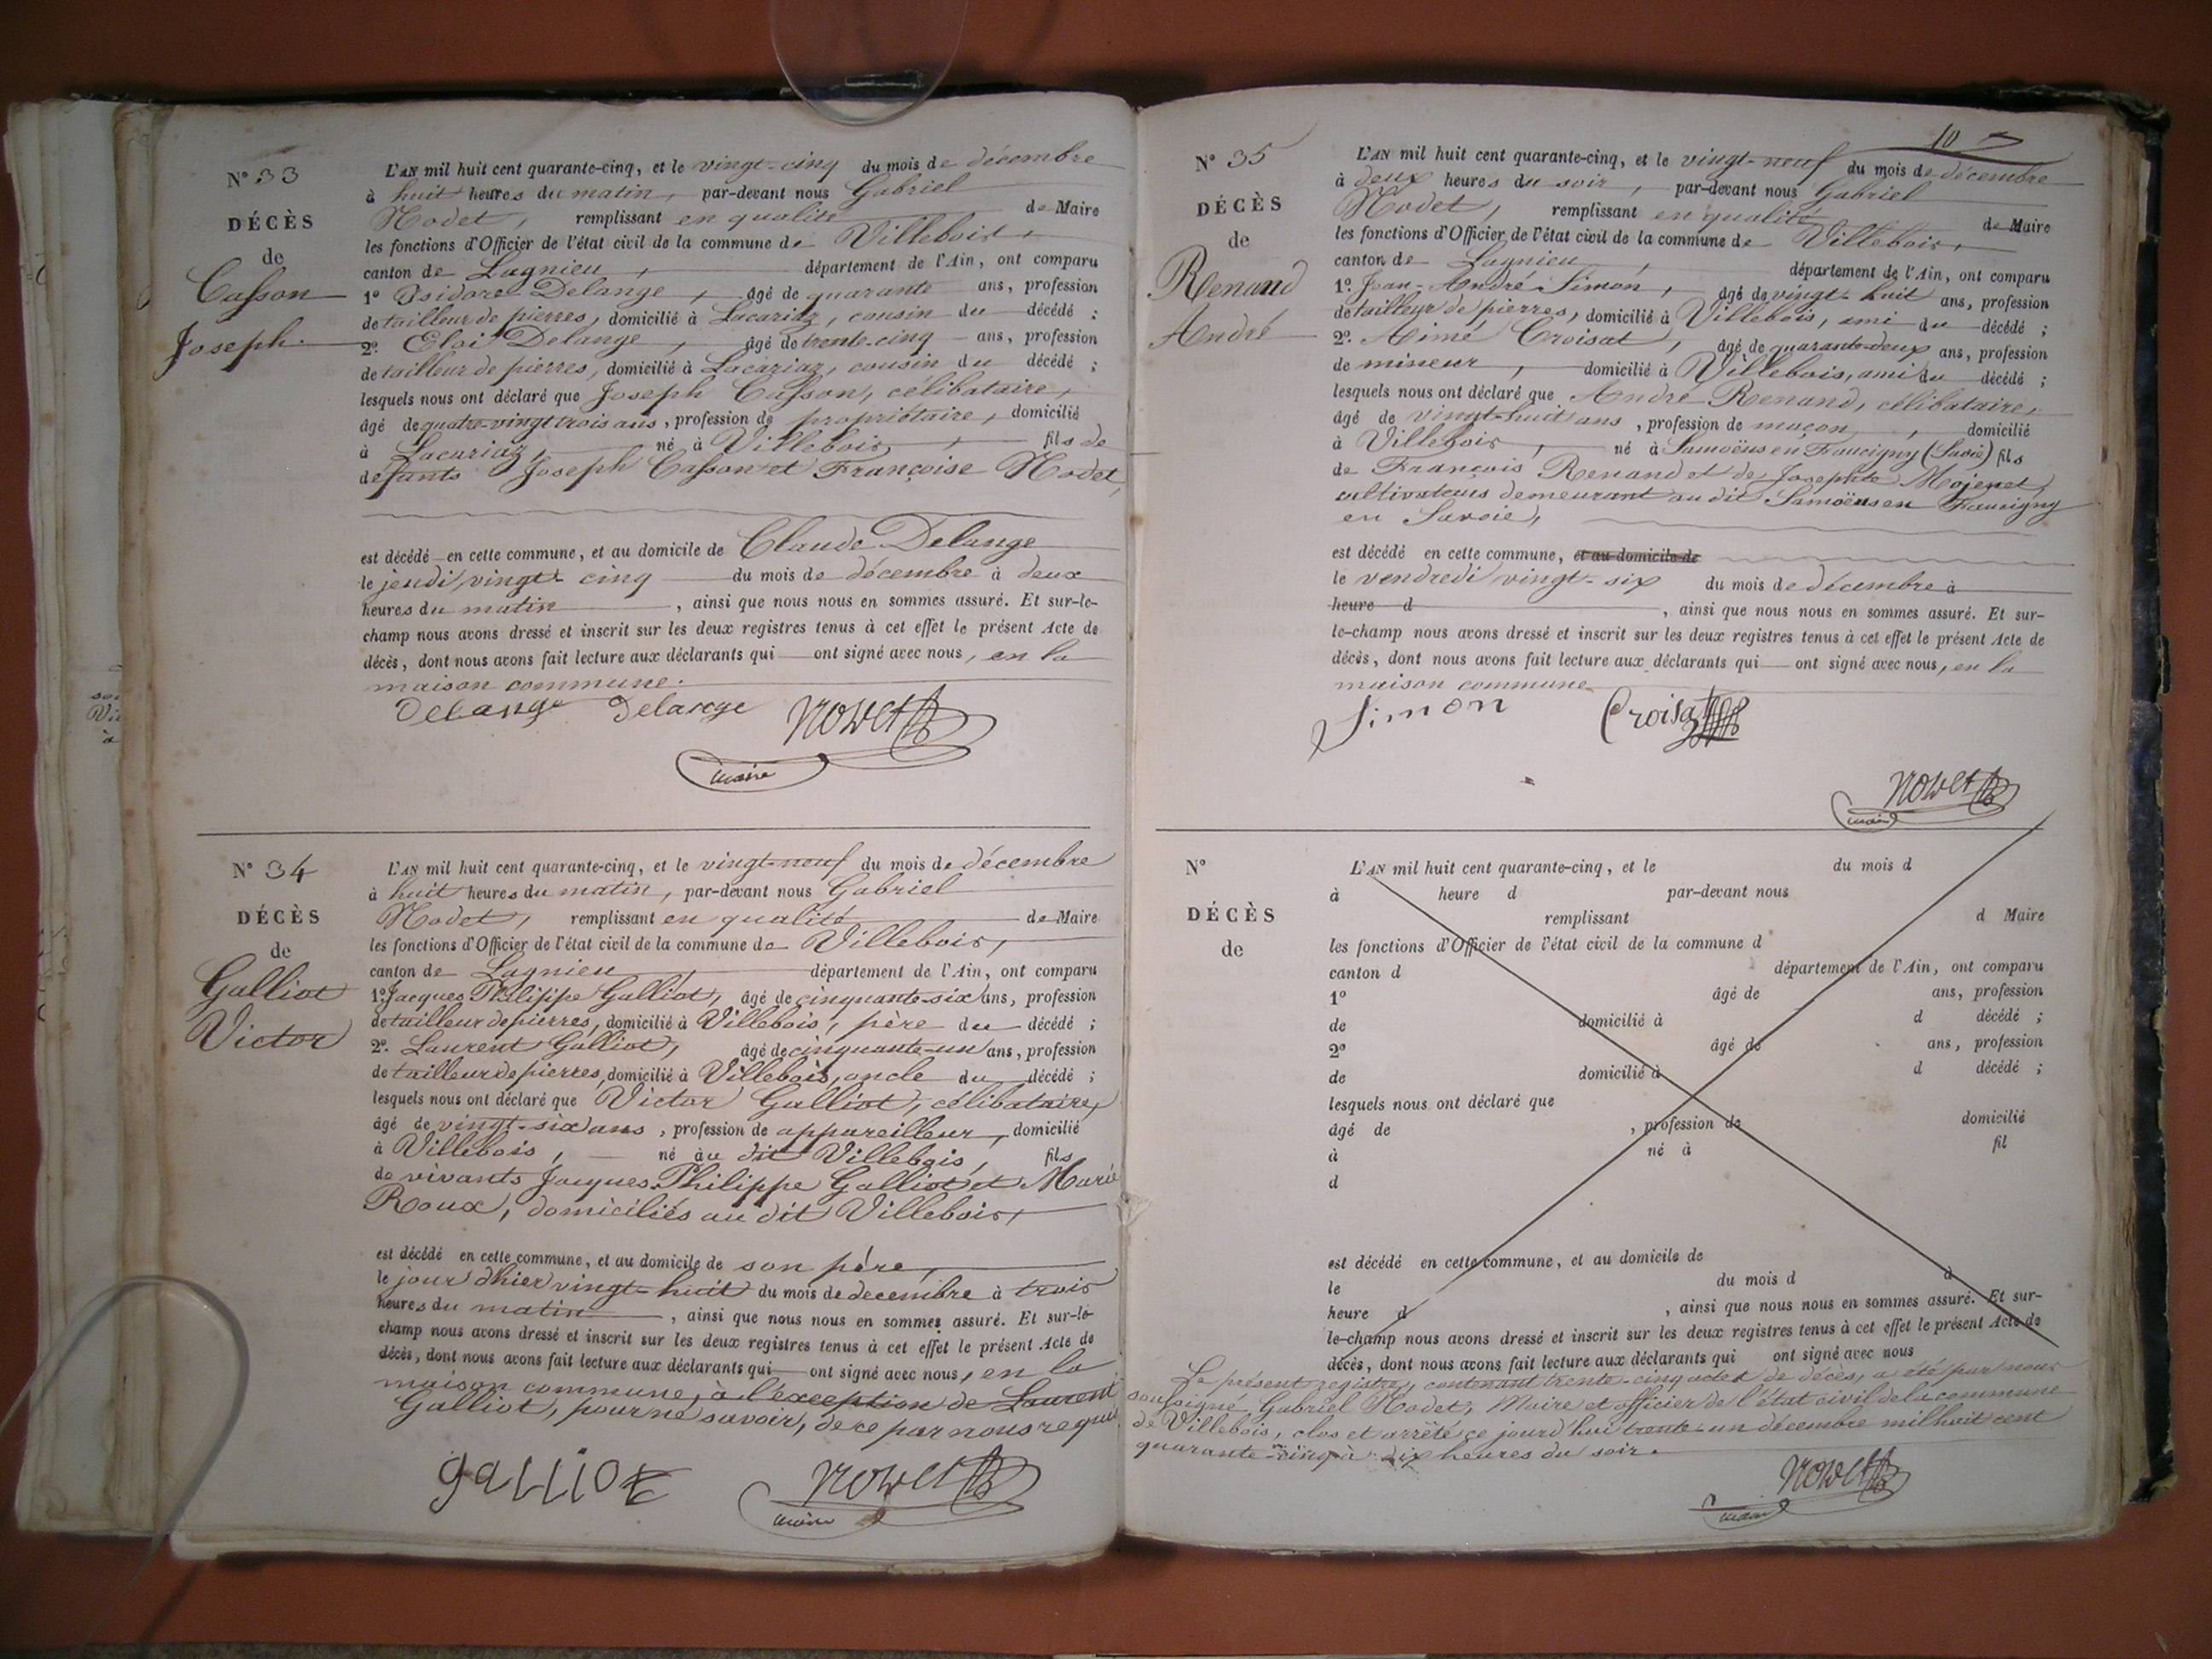 N° 33
DÉCÈS
de
Casson
Joseph.
L'AN mil huit cent quarante-cinq, et le vingt-cinq du mois de décembre
à huit heures du matin, par-devant nous Gabriel
Nodet, remplissant en qualité de Maire
les fonctions d'Officier de l'état civil de la commune de Villebois,
canton de Lagnieu, département de l'Ain, ont comparu
1° Isidore Delange, âgé de quarante ans, profession
de tailleur de pierres, domicilié à Lacariaz, cousin du décédé ;
2° Eloi Delange, âgé de trente-cinq ans, profession
de tailleur de pierres, domicilié à Lacariaz, cousin du décédé ;
lesquels nous ont déclaré que Joseph Casson, célibataire,
âgé de quatre-vingt trois ans, profession de propriétaire, domicilié
à Lacariaz, né à Villebois, fils de
défunts Joseph Casson et Françoise Nodet,
est décédé en cette commune, et au domicile de Claude Delange
le jeudi, vingt-cinq du mois de décembre à deux
heures du matin, ainsi que nous nous en sommes assuré. Et sur-le-
champ nous avons dressé et inscrit sur les deux registres tenus à cet effet le présent Acte de
décès, dont nous avons fait lecture aux déclarants qui ont signé avec nous, en la
maison commune.
Delange Delange Nodet
maire
N° 34
DÉCÈS
de
Galliot
Victor
L'AN mil huit cent quarante-cinq, et le vingt-neuf du mois de décembre
à huit heures du matin, par-devant nous Gabriel
Nodet, remplissant en qualité de Maire
les fonctions d'Officier de l'état civil de la commune de Villebois,
canton de Lagnieu, département de l'Ain, ont comparu
1° Jacques Philippe Galliot, âgé de cinquante-six ans, profession
de tailleur de pierres, domicilié à Villebois, père du décédé ;
2° Laurent Galliot, âgé de cinquante-un ans, profession
de tailleur de pierres, domicilié à Villebois, oncle du décédé ;
lesquels nous ont déclaré que Victor Galliot, célibataire,
âgé de vingt-six ans, profession de appareilleur, domicilié
à Villebois, né au dit Villebois, fils
de vivants Jacques Philippe Galliot et Marie
Roux, domiciliés au dit Villebois,
est décédé en cette commune, et au domicile de son père,
le jour d'hier vingt-huit du mois de decembre à trois
heures du matin, ainsi que nous nous en sommes assuré. Et sur-le-
champ nous avons dressé et inscrit sur les deux registres tenus à cet effet le présent Acte de
décès, dont nous avons fait lecture aux déclarants qui ont signé avec nous, en la
maison commune, à l'exception de Laurent
Galliot, pour ne savoir, de ce par nous requis
galliot Nodet
maire
10
N° 35
DÉCÈS
de
Renand
André
L'AN mil huit cent quarante-cinq, et le vingt-neuf du mois de décembre
à deux heures du soir, par-devant nous Gabriel
Nodet, remplissant en qualité de Maire
les fonctions d'Officier de l'état civil de la commune de Villebois,
canton de Lagnieu, département de l'Ain, ont comparu
1° Jean-André Simon, âgé de vingt-huit ans, profession
de tailleur de pierres, domicilié à Villebois, ami du décédé ;
2° Aimé Croisat, âgé de quarante-deux ans, profession
de mineur, domicilié à Villebois, ami du décédé ;
lesquels nous ont déclaré que André Renand, célibataire,
âgé de vingt-huit ans, profession de maçon, domicilié
à Villebois, né à Samoëns en Faucigny (Savoie) fils
de François Renand et de Josephte Mojenet,
cultivateurs demeurant au dit Samoëns en Faucigny
en Savoie,
est décédé en cette commune, et au domicile de
le vendredi vingt-six du mois de décembre à
heure d, ainsi que nous nous en sommes assuré. Et sur-
le-champ nous avons dressé et inscrit sur les deux registres tenus à cet effet le présent Acte de
décès, dont nous avons fait lecture aux déclarants qui ont signé avec nous, en la
maison commune
Simon Croisat
Nodet
maire
N°
DÉCÈS
de
L'AN mil huit cent quarante-cinq, et le du mois d
à heure d par-devant nous
remplissant d Maire
les fonctions d'Officier de l'état civil de la commune d
canton d département de l'Ain, ont comparu
1° âgé de ans, profession
de domicilié à d décédé ;
2° âgé de ans, profession
de domicilié à d décédé ;
lesquels nous ont déclaré que
âgé de , profession de domicilié
à né à fil
d
est décédé en cette commune, et au domicile de
le du mois d à
heure d , ainsi que nous nous en sommes assuré. Et sur-
le-champ nous avons dressé et inscrit sur les deux registres tenus à cet effet le présent Acte de
décès, dont nous avons fait lecture aux déclarants qui ont signé avec nous
Le présent registre, contenant trente-cinq actes de décès, a été par nous
soussigné, Gabriel Nodet, Maire et officier de l'état civil de la commune
de Villebois, clos et arrêté ce jourd'hui trente-un décembre mil huit cent
quarante-cinq à dix heures du soir.
Nodet
maire